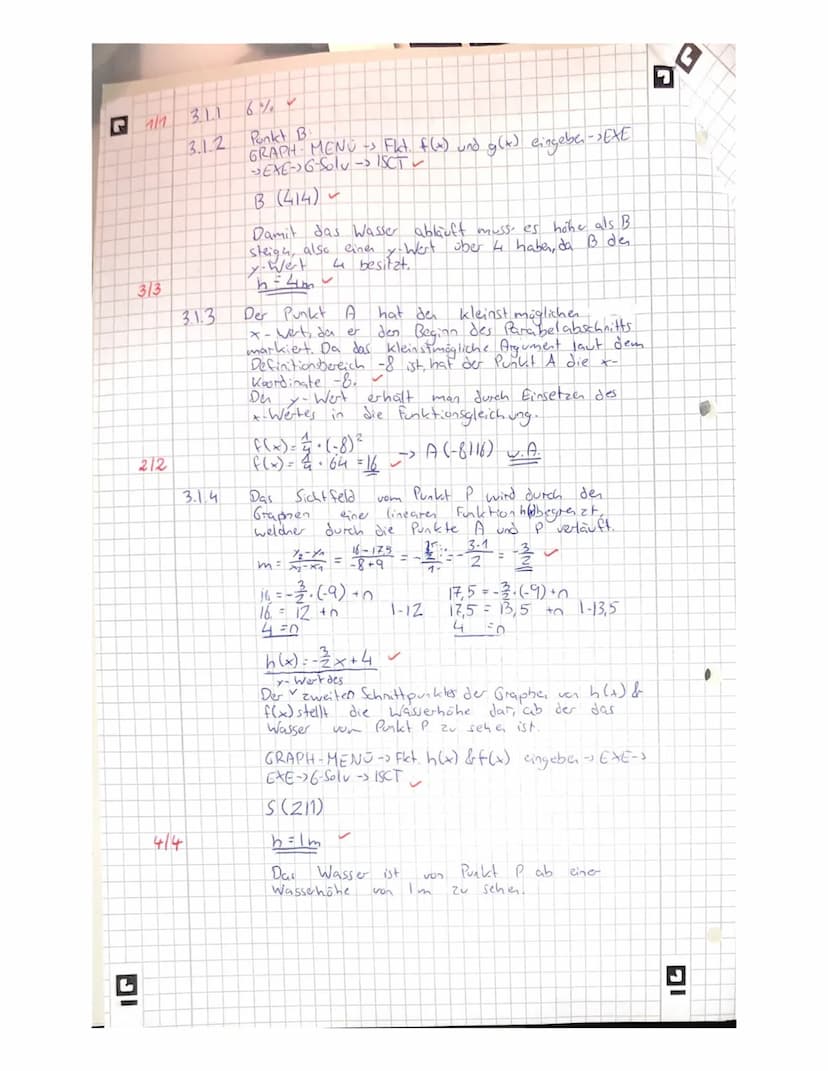 1/1 3.1.1 6% ✓
3.1.2 Punkt B:
GRAPH-MENÜ -> Fkt. f(x) und g(x) eingeben -> EXE
-> EXE -> G-Solv -> ISCT ✓
B (4|4) ✓
Damit das Wasser abläuft muss es höhe als B
steigen, also einen y-Wert über 4 haben, da B den
y-Wert 4 besitzt.
h = 4m ✓
3/3
3.1.3 Der Punkt A hat den kleinstmöglichen
x-Wert, da er den Beginn des Parabelabschnitts
markiert. Da das kleinstmögliche Argument laut dem
Definitionsbereich -8 ist, hat der Punkt A die x-
Koordinate -8. ✓
Den y-Wert erhält man durch Einsetzen des
x-Wertes in die Funktionsgleichung.
f(x) = 1/4 · (-8)²
2/2 f(x) = 1/4 · 64 = 16 ✓ -> A(-8|16) w.A.
3.1.4 Das Sichtfeld vom Punkt P wird durch den
Graphen einer linearen Funktion h(x) begrenzt,
welcher durch die Punkte A und P verläuft.
m = y₂-y₁/x₂-x₁ = 16-17,5/-8+9 = = -3·1/2 = -3/2 ✓
16 = -3/2 · (-9) + n 17,5 = -3/2 · (-9) + n
16 = 12 + n |-12 17,5 = 13,5 + n |-13,5
4 = n 4 = n
h(x) = -3/2 x + 4 ✓
y-Wert des
Der ˅ zweiten Schnittpunktes der Graphen von h(x) &
f(x) stellt die Wasserhöhe dar, ab der das
Wasser vom Punkt P zu sehen ist.
GRAPH-MENÜ -> Fkt. h(x) & f(x) eingeben -> EXE ->
EXE -> G-Solv -> ISCT ✓
S (2|1)
4/4 h = 1m ✓
Das Wasser ist von Punkt P ab einer
Wasserhöhe von 1m zu sehen.